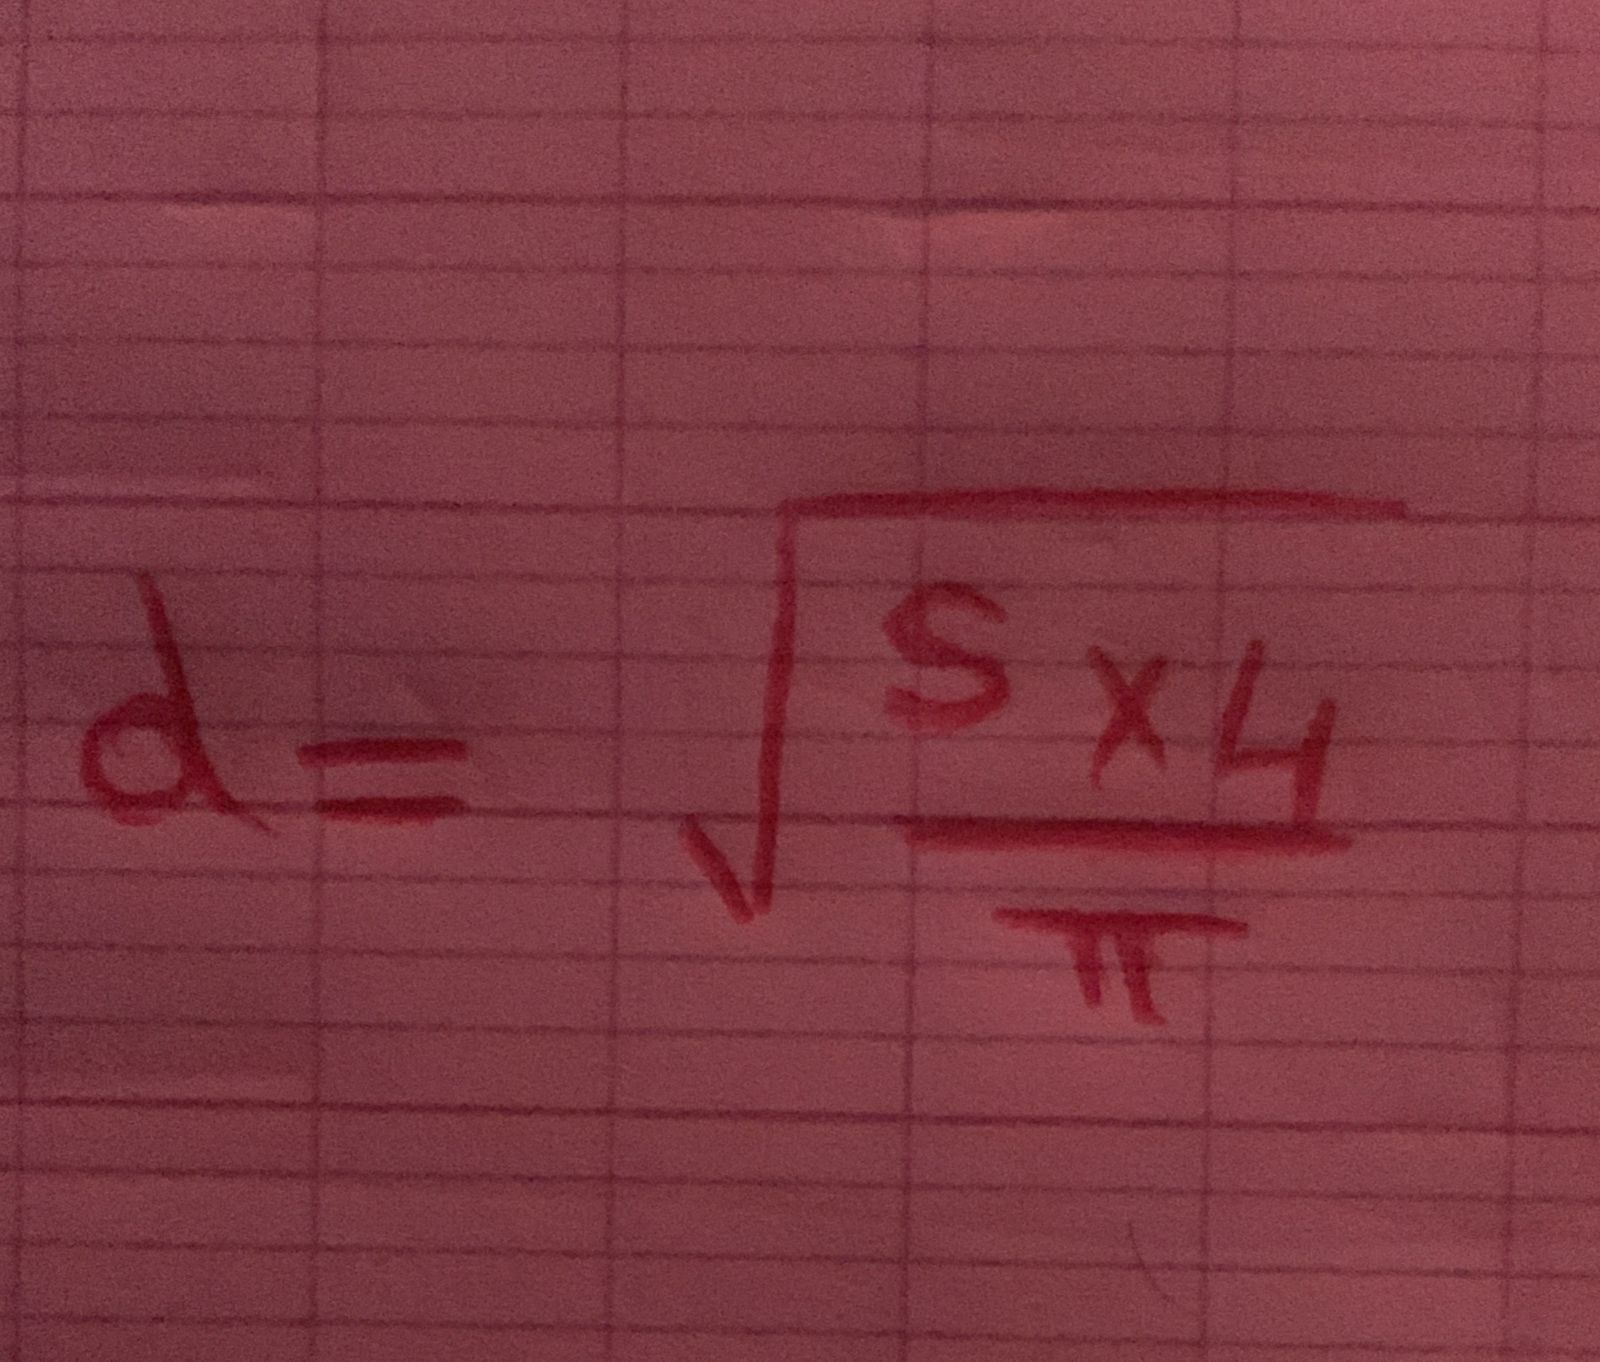 d = √(S × 4 / π)